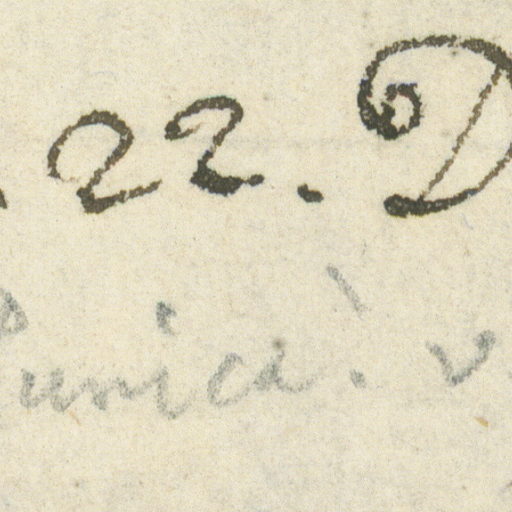 . 22. D
punica. v